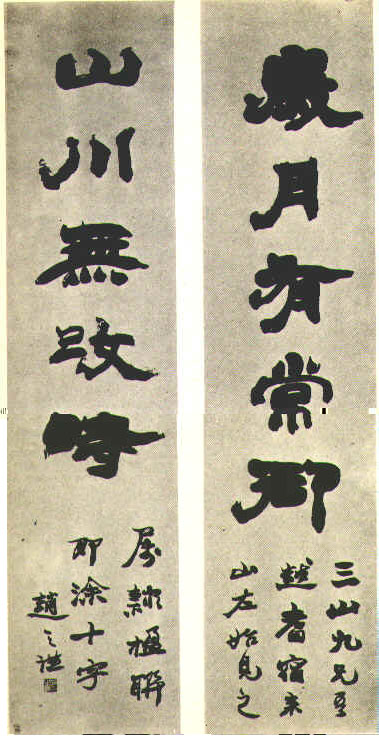 歲月有常
三山九兄吾
越耆宿来
山左始見之
山川無改時
屬隸楹聯
即涂十字
趙之謙